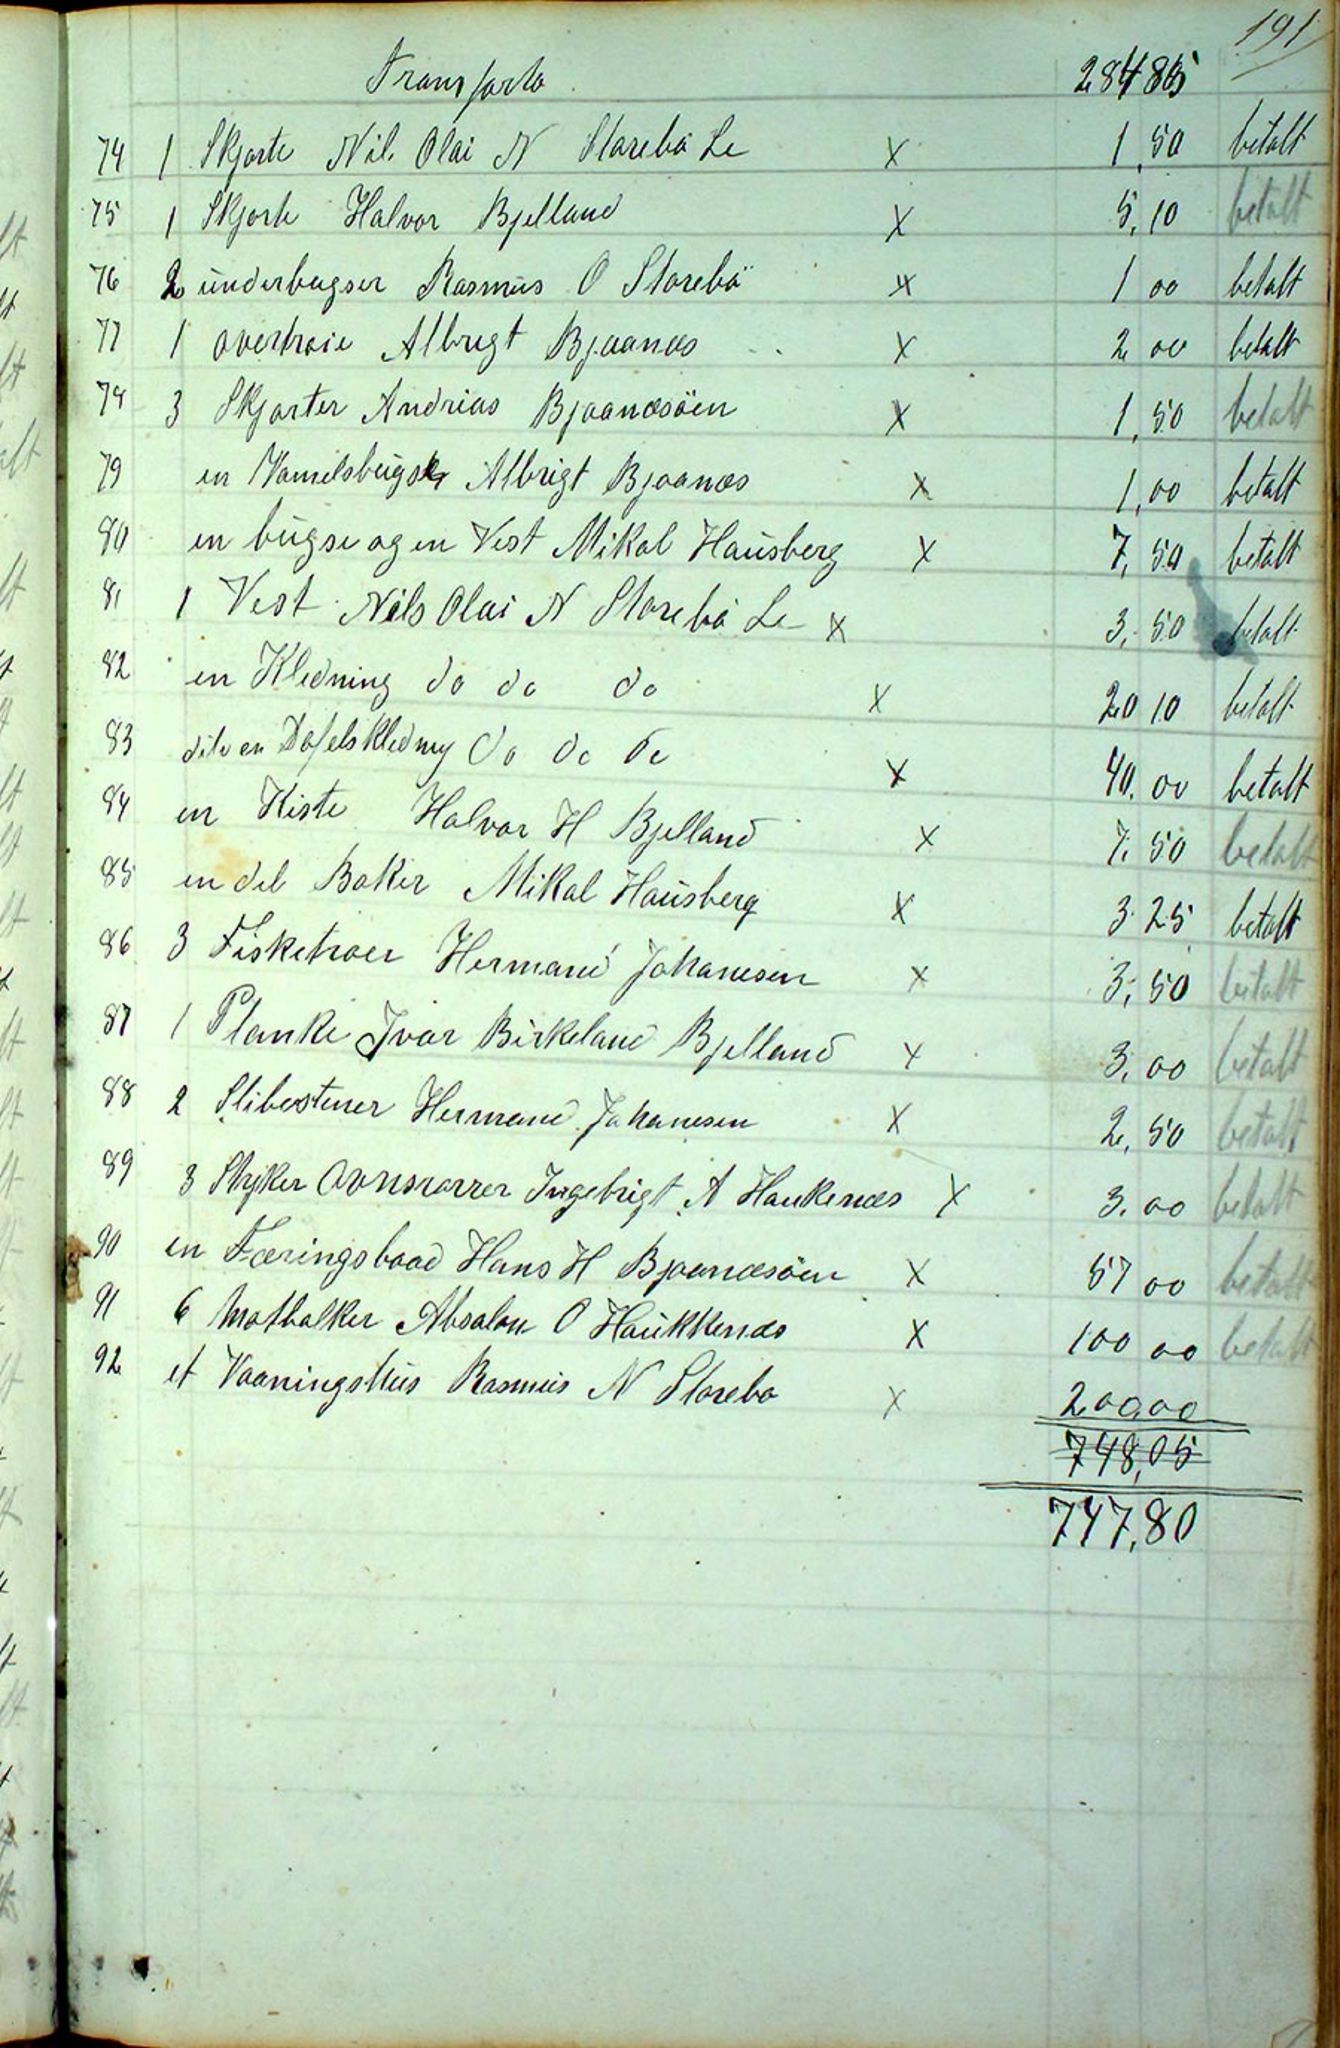 191
Transporto 284 85
74 1 Skjorte Nil. Olai N Storebö Le X 1,50 betalt
75 1 Skjorte Halvor Bjelland X 5,10 betalt
76 2 underbugser Rasmus O Storebö X 1 00 betalt
77 1 overtroie Albregt Bjaanæs X 2 00 betalt
78 3 Skjorter Andrias Bjaanæsöen X 1,50 betalt
79 en Vamelsbugse Albrigt Bjaanæs X 1,00 betalt
80 en bugse og en Vest Mikal Hausberg X 7,50 betalt
81 1 Vest Nils Olai N Storebö Le X 3,50 betalt
82 en Kledning do do do X 20 10 betalt
83 dito en Dofelskledning do do do X 40.00 betalt
84 en Kiste Halvor H Bjelland X 7.50 betalt
85 en del Boker Mikal Hausberg X 3.25 betalt
86 3 Fisketroer Hermand Johanesen X 3,50 betalt
87 1 Planke Ivar Birkeland Bjelland X 3.00 betalt
88 2 Slibestener Hermand Johanesen X 2,50 betalt
89 3 Styker Ovnsrorrer Ingebrigt A Haukenæs X 3.00 betalt
90 en Færingsbaad Hans H Bjaanæsöen X 57 00 betalt
91 6 Motbolker Absalon O Haukkenæs X 100 00 betalt
92 et Vaaningshus Rasmus N Storebo X 200,00
748,05
747,80